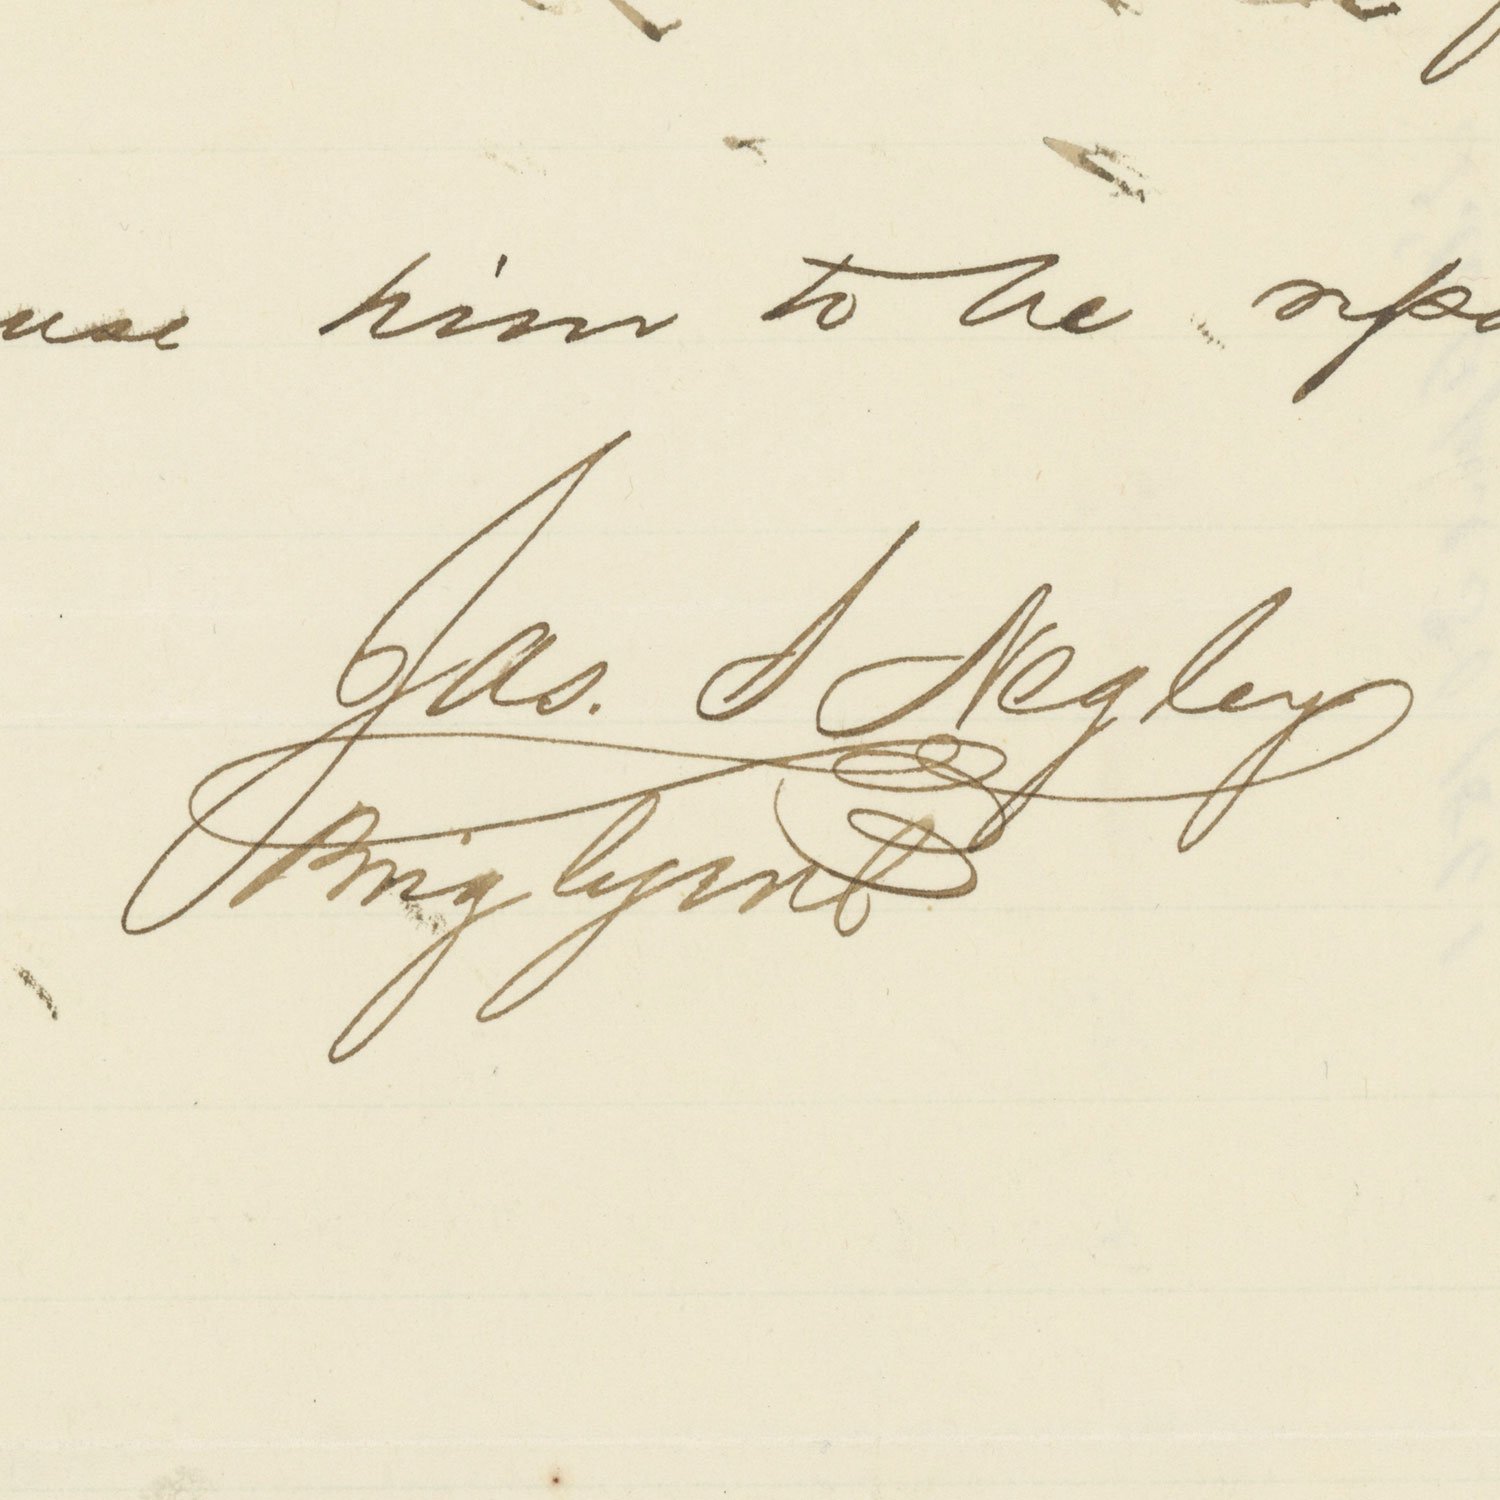 use him to be repo
Jas. S Negley
Brig Genl